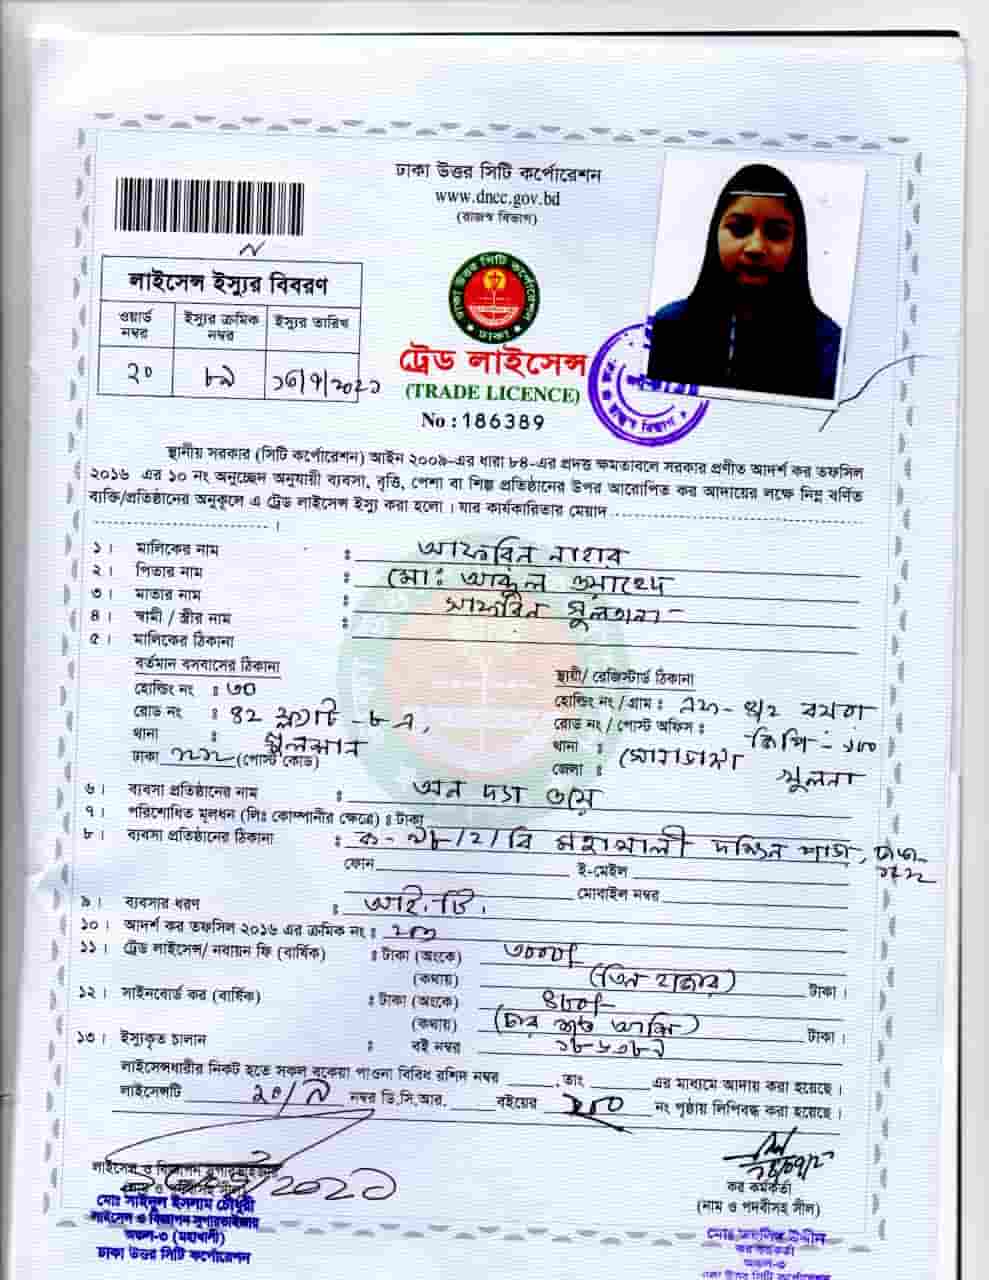 ঢাকা উত্তর সিটি কর্পোরেশন
www.dncc.gov.bd
(রাজস্ব বিভাগ)
লাইসেন্স ইস্যুর বিবরণ
ওয়ার্ড নম্বর
ইস্যুর ক্রমিক নম্বর
ইস্যুর তারিখ
২০
৮৯
ঢাকা উত্তর সিটি কর্পোরেশন
ঢাকা
ট্রেড লাইসেন্স
(TRADE LICENCE)
No : 186389
স্থানীয় সরকার (সিটি কর্পোরেশন) আইন ২০০৯-এর ধারা ৮৪-এর প্রদত্ত ক্ষমতাবলে সরকার প্রণীত আদর্শ কর তফসিল
২০১৬ এর ১০ নং অনুচ্ছেদ অনুযায়ী ব্যবসা, বৃত্তি, পেশা বা শিল্প প্রতিষ্ঠানের উপর আরোপিত কর আদায়ের লক্ষে নিম্ন বর্ণিত
ব্যক্তি/প্রতিষ্ঠানের অনুকূলে এ ট্রেড লাইসেন্স ইস্যু করা হলো। যার কার্যকারিতার মেয়াদ
১। মালিকের নাম : আফরিন নাহার
২। পিতার নাম : মো: আব্দুল ওয়াহেদ
৩। মাতার নাম : সাফরিন সুলতানা
৪। স্বামী / স্ত্রীর নাম :
৫। মালিকের ঠিকানা
বর্তমান বসবাসের ঠিকানা
হোল্ডিং নং : ৩০
রোড নং : ৪২ ফ্ল্যাট -৮এ,
থানা : গুলশান
ঢাকা ১২১২ (পোস্ট কোড)
স্থায়ী/ রেজিস্টার্ড ঠিকানা
হোল্ডিং নং / গ্রাম :
রোড নং / পোস্ট অফিস :
থানা : সোনাডাঙ্গা
জেলা : খুলনা
৬। ব্যবসা প্রতিষ্ঠানের নাম : অন দ্যা ওয়ে
৭। পরিশোধিত মূলধন (লিঃ কোম্পানীর ক্ষেত্রে) : টাকা
৮। ব্যবসা প্রতিষ্ঠানের ঠিকানা : মহাখালী দক্ষিন পাড়া, ঢাকা-
১২১২
ফোন
ই-মেইল
মোবাইল নম্বর
৯। ব্যবসার ধরণ : আই.টি.
১০। আদর্শ কর তফসিল ২০১৬ এর ক্রমিক নং :
১১। ট্রেড লাইসেন্স/ নবায়ন ফি (বার্ষিক) : টাকা (অংকে) ৩০০০/-
(কথায়) (তিন হাজার) টাকা।
১২। সাইনবোর্ড কর (বার্ষিক) : টাকা (অংকে) ৪৮০/-
(কথায়) (চার শত আশি) টাকা।
১৩। ইস্যুকৃত চালান : বই নম্বর ১৮৬৩৮৯
লাইসেন্সধারীর নিকট হতে সকল বকেয়া পাওনা বিবিধ রশিদ নম্বর , তাং এর মাধ্যমে আদায় করা হয়েছে।
লাইসেন্সটি নম্বর ডি.সি.আর. বইয়ের নং পৃষ্ঠায় লিপিবদ্ধ করা হয়েছে।
লাইসেন্স ও বিজ্ঞাপন সুপারভাইজার
মোঃ সাইদুল ইসলাম চৌধুরী
লাইসেন্স ও বিজ্ঞাপন সুপারভাইজার
অঞ্চল-৩ (মহাখালী)
ঢাকা উত্তর সিটি কর্পোরেশন
কর কর্মকর্তা
(নাম ও পদবীসহ সীল)
কর কর্মকর্তা
অঞ্চল-৩
ঢাকা উত্তর সিটি কর্পোরেশন